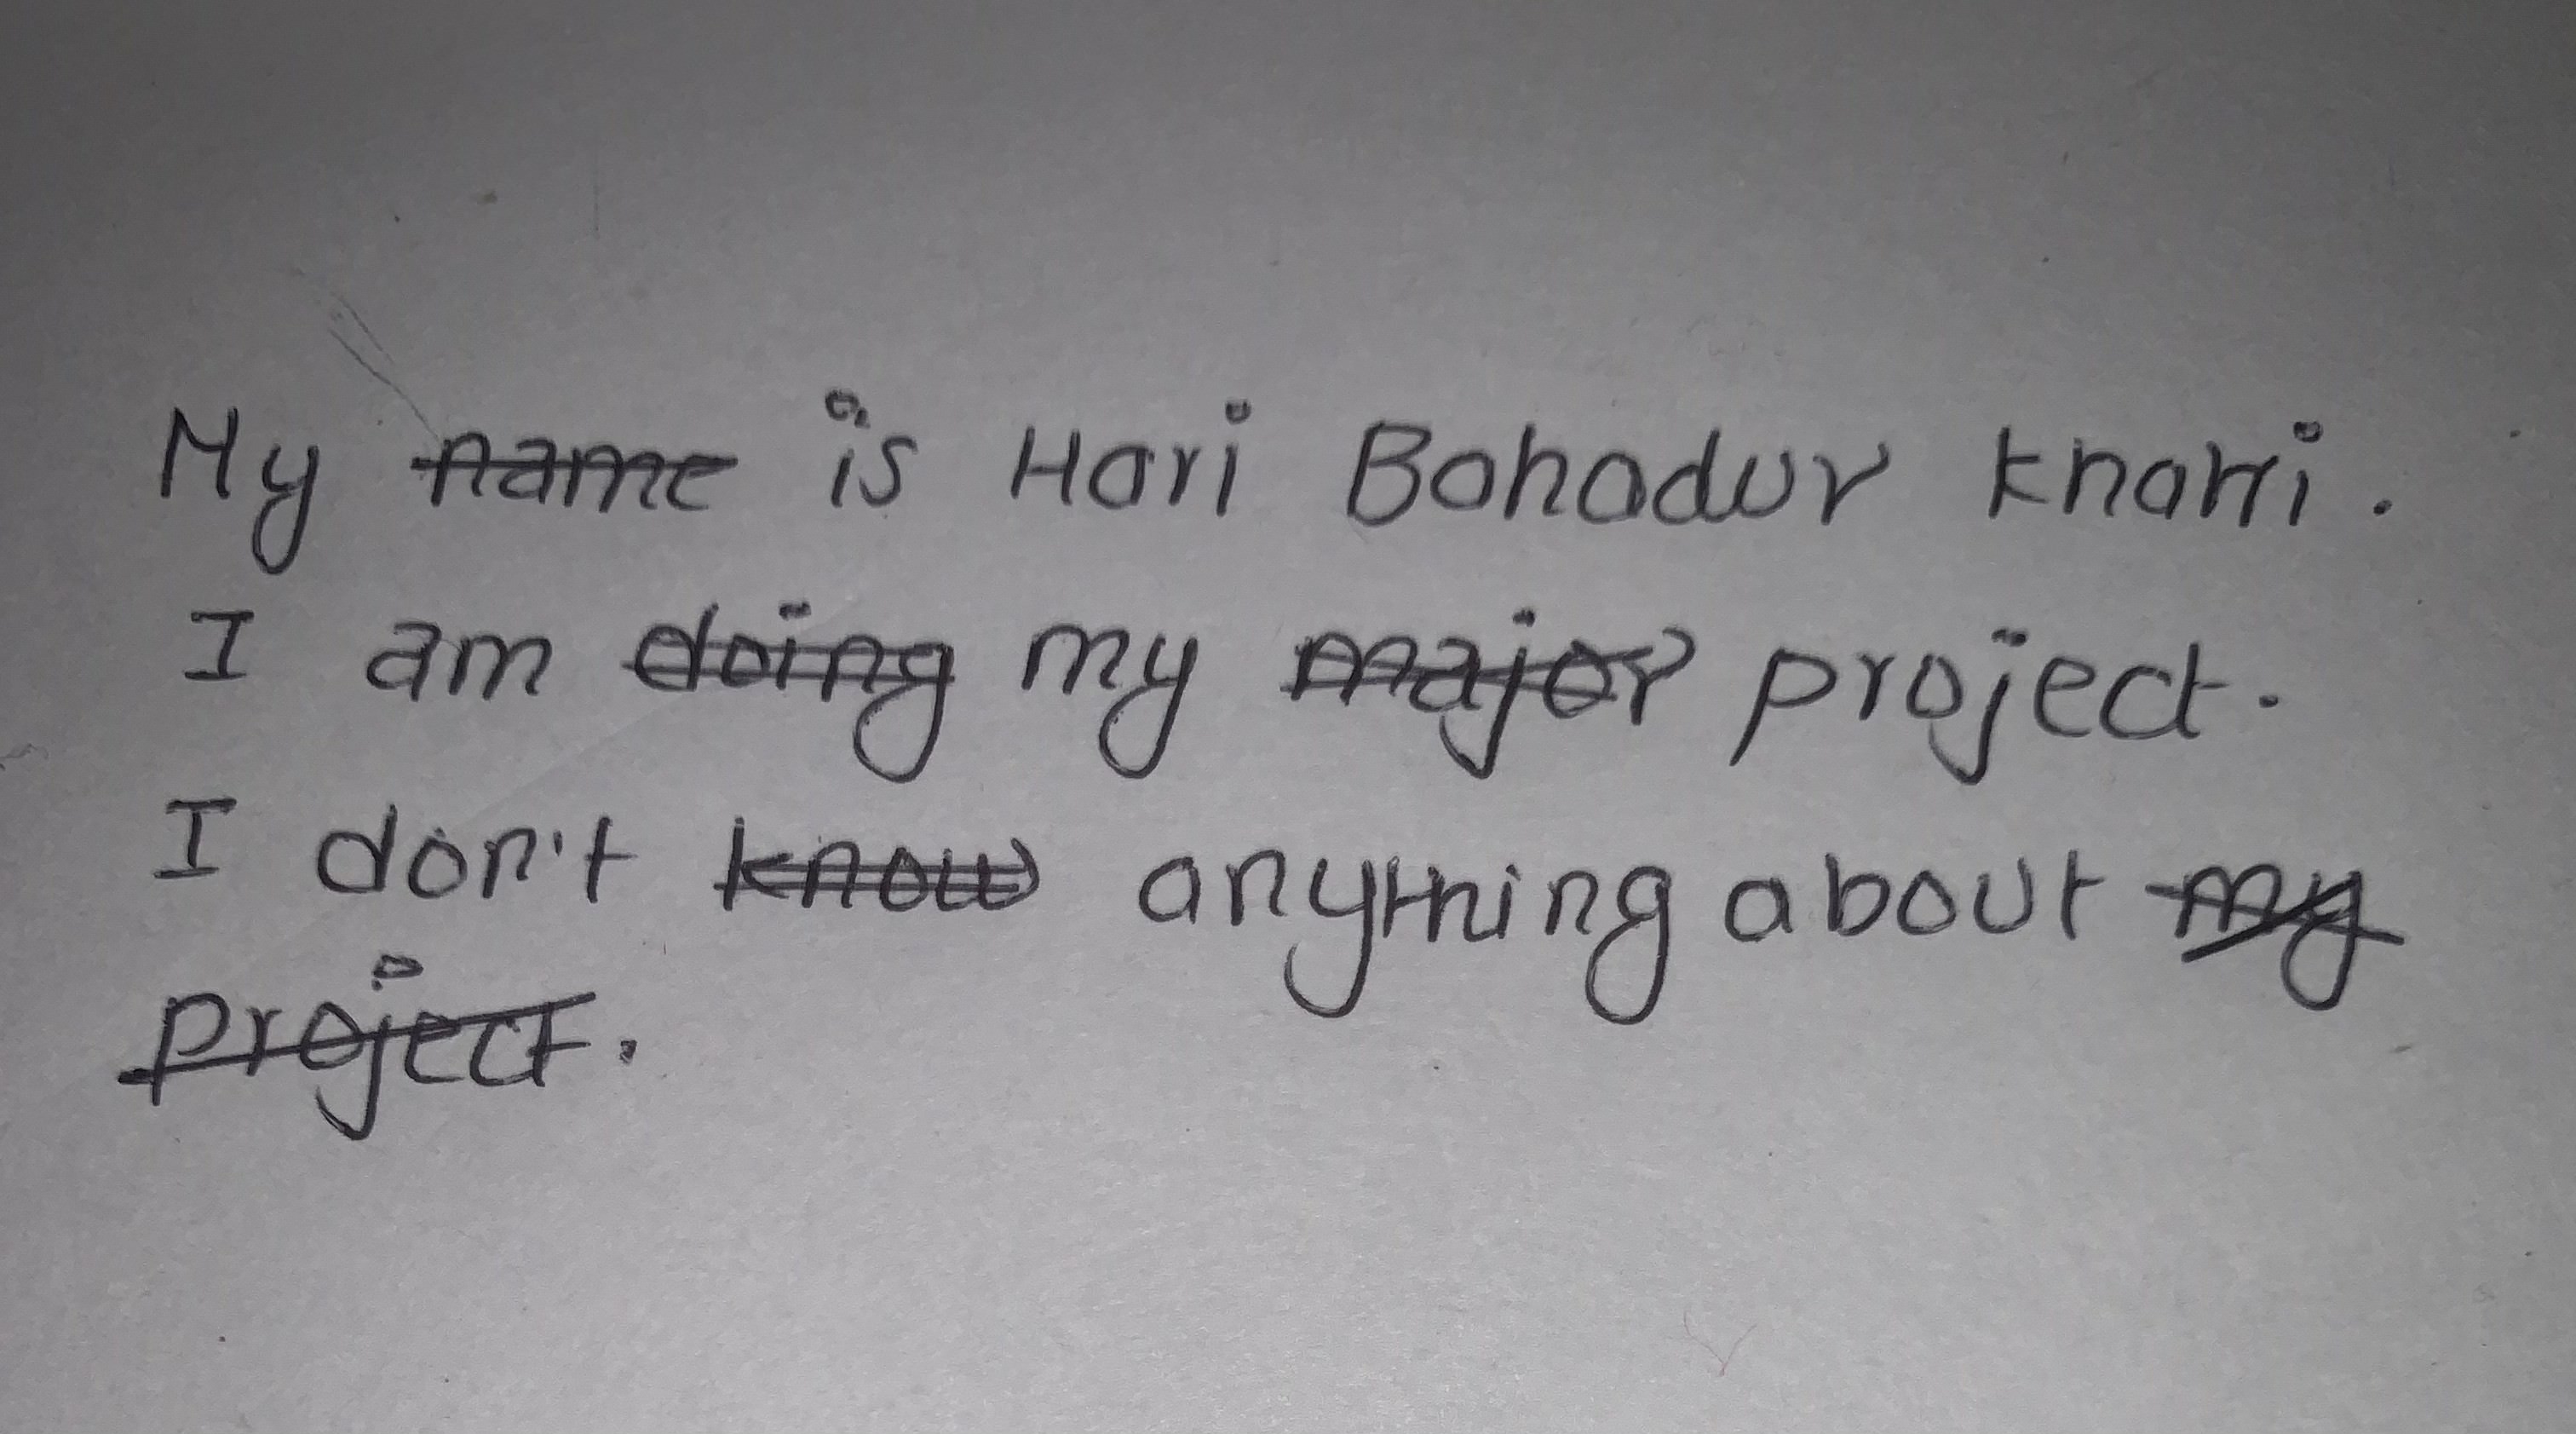 My ~~name~~ is Hari Bahadur Khatri.
I am ~~doing~~ my ~~major~~ project.
I don't ~~know~~ anything about ~~my~~
~~project~~.